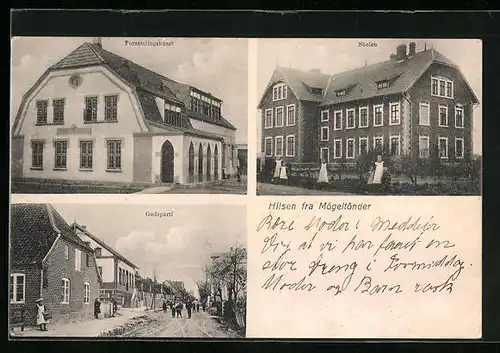 Forsamlingshuset
Skolen
Gadeparti
Hilsen fra Mögeltönder
Kære Moder! Meddeler
Dig at vi har faaet en
stor Dreng i Formiddag.
Moder og Barn rask